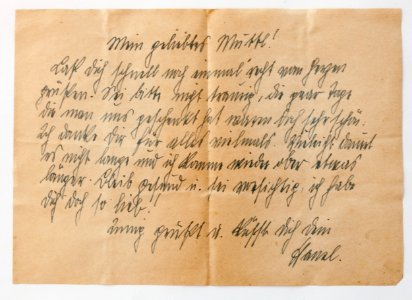 Mein geliebtes Muttl!
Laß Dich schnell noch einmal recht vom Herzen
grüßen. Sei bitte nicht traurig, die paar Tage
die man uns geschenkt hat waren doch sehr schön.
Ich danke Dir für alles vielmals. Vielleicht dauert
es nicht lange und ich komme wieder aber etwas
länger. Bleib gesund u. sei vorsichtig ich habe
Dich doch so lieb!
Innig grüßt u. küßt Dich Dein